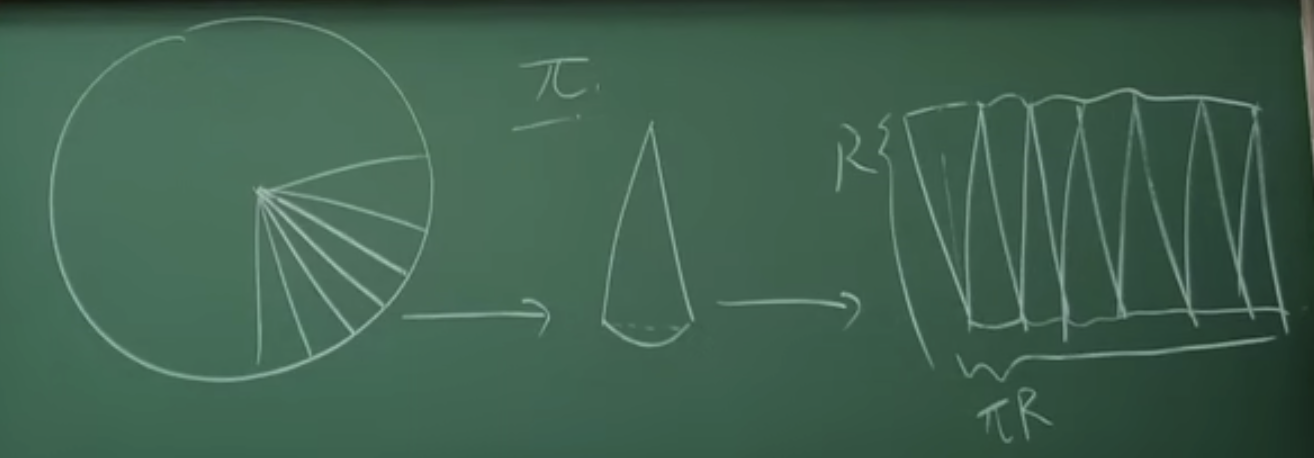 π.
R
πR